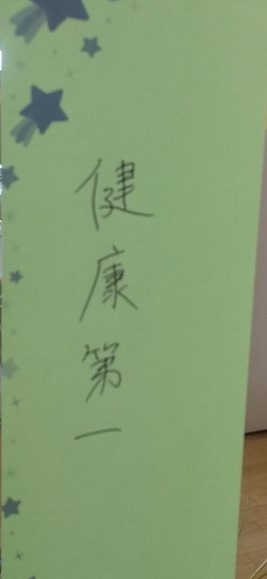 健康第一